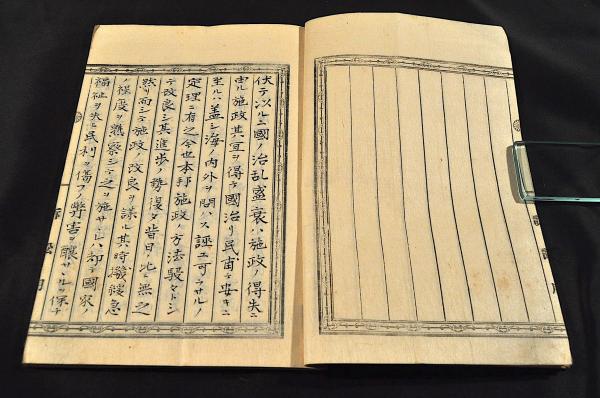 伏テ以ルニ國ノ治乱盛衰ハ施政ノ得失ニ
由ル施政其宜ヲ得テ國治リ民甫テ安キニ
至ルハ蓋シ海ノ内外ヲ問ハス誣ユ可ラサルノ
定理ニ有之今也本邦施政ノ方法駸々トシ
テ改良シ其進歩ノ勢復タ昔日ノ比ニ無之
然リ而シテ施政ノ改良ヲ謀ル其時機緩急
ノ程度ヲ熟察シテ之ヲ施サヽレハ却テ國家ノ
福祉ヲ失ヒ民利ヲ傷フノ弊害ヲ醸サヽルヲ保チ